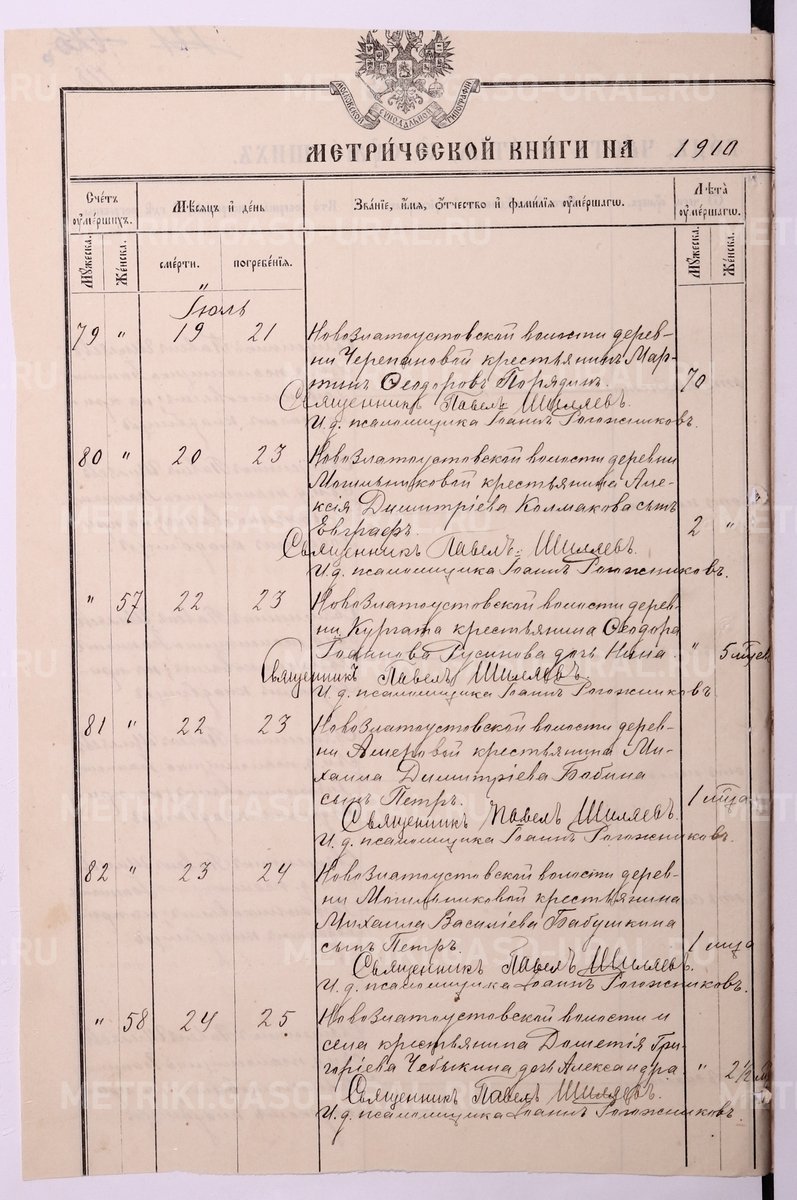 МОСКОВСКОЙ СѴНОДАЛЬНОЙ ТИПОГРАФІИ
МЕТРИ́ЧЕСКОЙ КНИ́ГИ НА 1910
Счетъ ᲂумершихъ.
Мѣсяцъ и день
Званїе, имя, ѻтчество и фамилїя ᲂумершагѡ.
Лѣта ᲂумершагѡ.
Мужеска.
Женска.
смерти.
погребенїя.
Мужеска.
Женска.
Іюль
79 " 19 21 Новозлатоустовской волости дерев-
ни Черепановой крестьянинъ Мар-
тинъ Ѳеодоровъ Порядинъ. 70
Священникъ Павелъ Шиляевъ.
И.д. псаломщика Іоаннъ Рогожниковъ.
80 " 20 23 Новозлатоустовской волости деревни
Могильниковой крестьянина Але-
ксія Димитріева Колмакова сынъ
Евграфъ. 2 "
Священникъ Павелъ Шиляевъ.
И.д. псаломщика Іоаннъ Рогожниковъ.
" 57 22 23 Новозлатоустовской волости дерев-
ни Кургата крестьянина Ѳеодора
Іоаннова Русинова дочь Нина " 5
Священникъ Павелъ Шиляевъ.
И.д. псаломщика Іоаннъ Рогожниковъ
81 " 22 23 Новозлатоустовской волости дерев-
ни Амеровой крестьянина Ми-
хаила Димитріева Бабина
сынъ Петръ. 1 мѣсца
Священникъ Павелъ Шиляевъ.
И.д. псаломщика Іоаннъ Рогожниковъ.
82 " 23 24 Новозлатоустовской волости дерев-
ни Могильниковой крестьянина
Михаила Василіева Бабушкина
сынъ Петръ. 1 мѣсца
Священникъ Павелъ Шиляевъ.
И.д. псаломщика Іоаннъ Рогожниковъ.
" 58 24 25 Новозлатоустовской волости и
села крестьянина Дометія Гри-
горіева Чебыкина дочь Александра " 2½ м
Священникъ Павелъ Шиляевъ.
И.д. псаломщика Іоаннъ Рогожниковъ.
METRIKI.GASO-URAL.RU